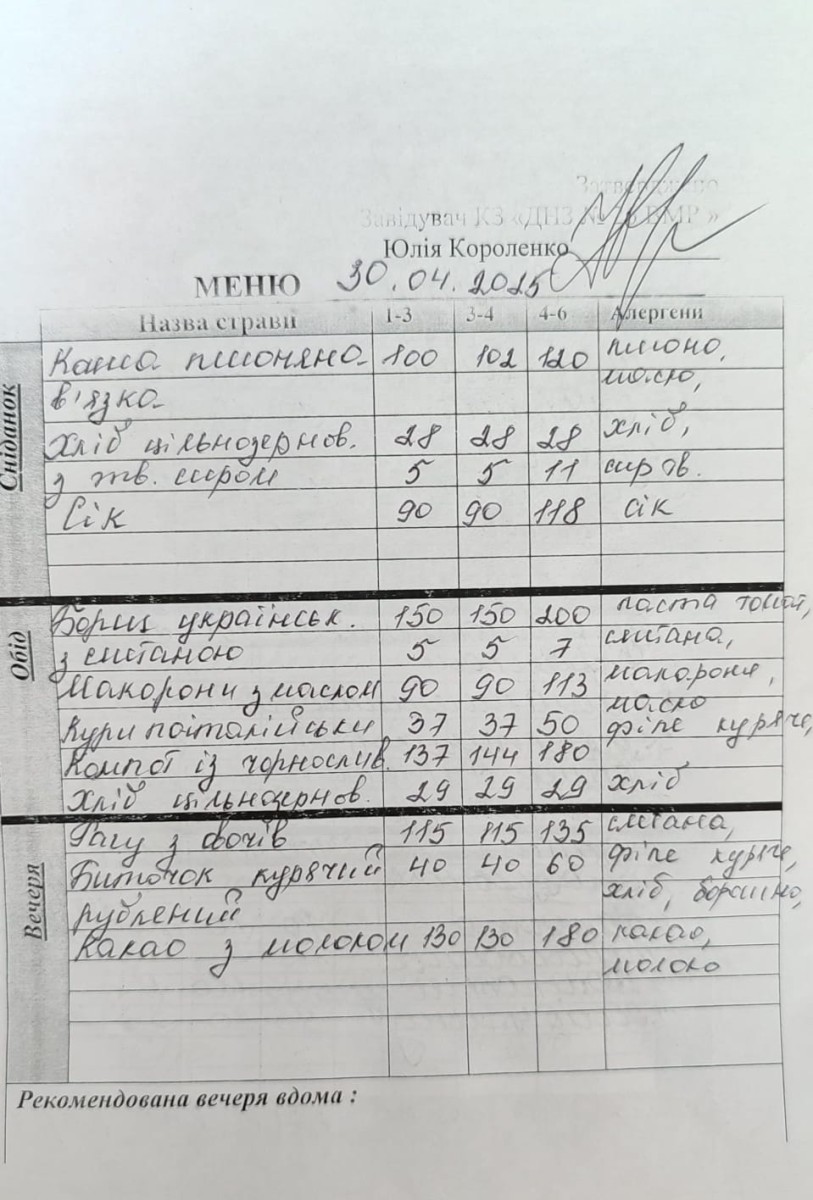 Затверджено
Завідувач КЗ «ДНЗ № ВМР »
Юлія Короленко
МЕНЮ 30.04.2025
Назва страви 1-3 3-4 4-6 Алергени
Сніданок
Каша пшоняна 100 102 120 пшоно,
в'язка масло,
Хліб цільнозернов. 28 28 28 хліб,
з тв. сиром 5 5 11 сир ов.
Сік 90 90 118 сік
Обід
Борщ українськ. 150 150 200 паста томат,
з сметаною 5 5 7 сметана,
Макорони з маслом 90 90 113 макорони,
масло
Кури поіталійськи 37 37 50 філе куряче,
Компот із чорнослив. 137 144 180
Хліб цільнозернов. 29 29 29 хліб
Вечеря
Рагу з овочів 115 115 135 сметана,
Биточок курячий 40 40 60 філе куряче,
рублений хліб, борошно,
Какао з молоком 130 130 180 какао,
молоко
Рекомендована вечеря вдома :